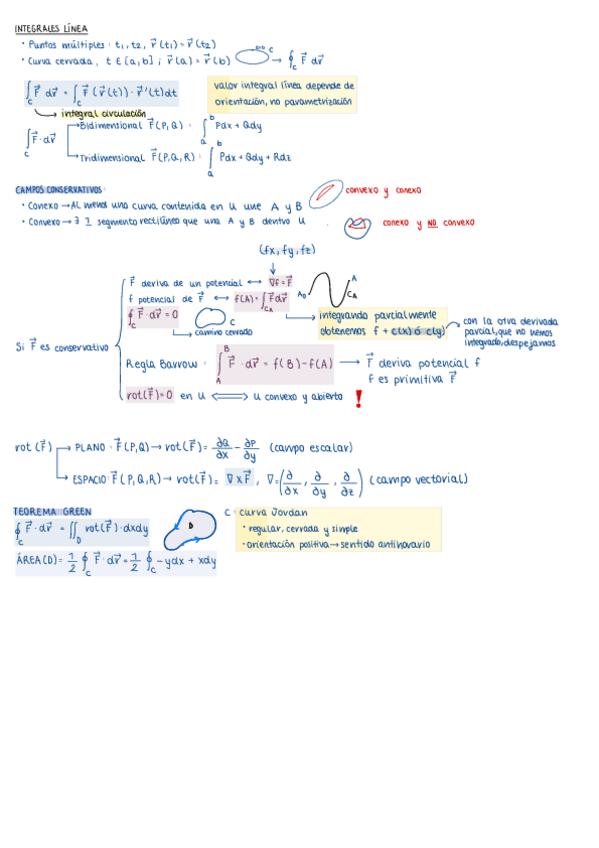 INTEGRALES LÍNEA
· Puntos múltiples: t₁, t₂, r⃗(t₁) = r⃗(t₂)
· Curva cerrada, t ∈ [a,b] ; r⃗(a) = r⃗(b) C → ∮_C F⃗ dr⃗
∫_C F⃗ dr⃗ = ∫_C F⃗(r⃗(t)) · r⃗'(t)dt
valor integral línea depende de
orientación, no parametrización
→ integral circulación
∫_C F⃗·dr⃗
→ Bidimensional F⃗(P,Q): ∫_a^b Pdx + Qdy
→ Tridimensional F⃗(P,Q,R): ∫_a^b Pdx + Qdy + Rdz
CAMPOS CONSERVATIVOS:
· Conexo → AL menos una curva contenida en U une A y B
convexo y conexo
· Convexo → ∃ 1 segmento rectilíneo que una A y B dentro U.
conexo y NO convexo
(fx, fy, fz)
↓
Si F⃗ es conservativo
F⃗ deriva de un potencial ⟷ ∇f = F⃗
f potencial de F⃗ ⟷ f(A) = ∫_{C_A} F⃗dr⃗
A₀ A C_A
∮_C F⃗·dr⃗ = 0 C
→ camino cerrado
→ integrando parcialmente
obtenemos f + c(x) ó c(y)
con la otra derivada
parcial, que no hemos
integrado, despejamos
Regla Barrow: ∫_A^B F⃗·dr⃗ = f(B) - f(A) → F⃗ deriva potencial f
f es primitiva F⃗
rot(F⃗)=0 en U ⟺ U convexo y abierto !
rot(F⃗) → PLANO: F⃗(P,Q) → rot(F⃗) = ∂Q/∂x - ∂P/∂y (campo escalar)
→ ESPACIO: F⃗(P,Q,R) → rot(F⃗) = ∇xF⃗, ∇=(∂/∂x, ∂/∂y, ∂/∂z) (campo vectorial)
TEOREMA GREEN
∮_C F⃗·dr⃗ = ∬_D rot(F⃗)·dxdy
D
C: curva Jordan
· regular, cerrada y simple
· orientación positiva → sentido antihorario
ÁREA(D) = 1/2 ∮_C F⃗·dr⃗ = 1/2 ∮_C -ydx + xdy